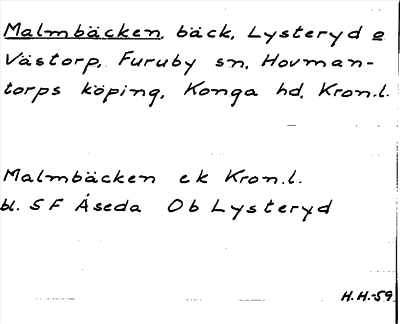 Malmbäcken, bäck, Lysteryd o
Västorp, Furuby sn, Hovman-
torps köping, Konga hd, Kron.l.
Malmbäcken ek Kron.l.
bl. 5 F Åseda Ob Lysteryd
H.H.-59